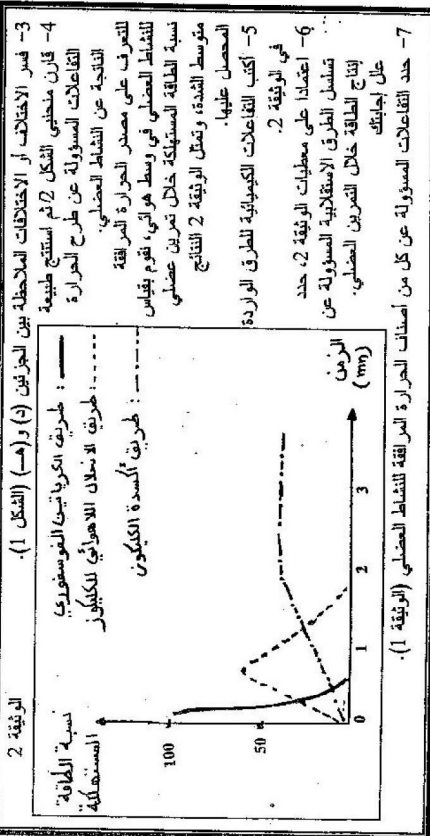 3- فسر الاختلاف أو الاختلافات الملاحظة بين الجزئين (د) و(هـ) (الشكل 1).
4- قارن منحنيي الشكل 2 ثم استنتج طبيعة
التفاعلات المسؤولة عن طرح الحرارة
الناتجة عن النشاط العضلي.
للتعرف على مصدر الحرارة المرافقة
للنشاط العضلي في وسط هوائي، نقوم بقياس
نسبة الطاقة المستهلكة خلال تمرين عضلي
متوسط الشدة، وتمثل الوثيقة 2 النتائج
المحصل عليها.
5- اكتب التفاعلات الكيميائية للطرق الواردة
في الوثيقة 2.
6- اعتمادا على معطيات الوثيقة 2، حدد
تسلسل الطرق الاستقلابية المسؤولة عن
إنتاج الطاقة خلال التمرين العضلي.
7- حدد التفاعلات المسؤولة عن كل من أصناف الحرارة المرافقة للنشاط العضلي (الوثيقة 1).
علل إجابتك
الوثيقة 2
نسبة الطاقة
المستهلكة
: طريق الكرياتين الفوسفوري
: طريق الانحلال اللاهوائي للكليكوز
: طريق أكسدة الكليكوز
100
50
0
1
2
3
الزمن
(mn)